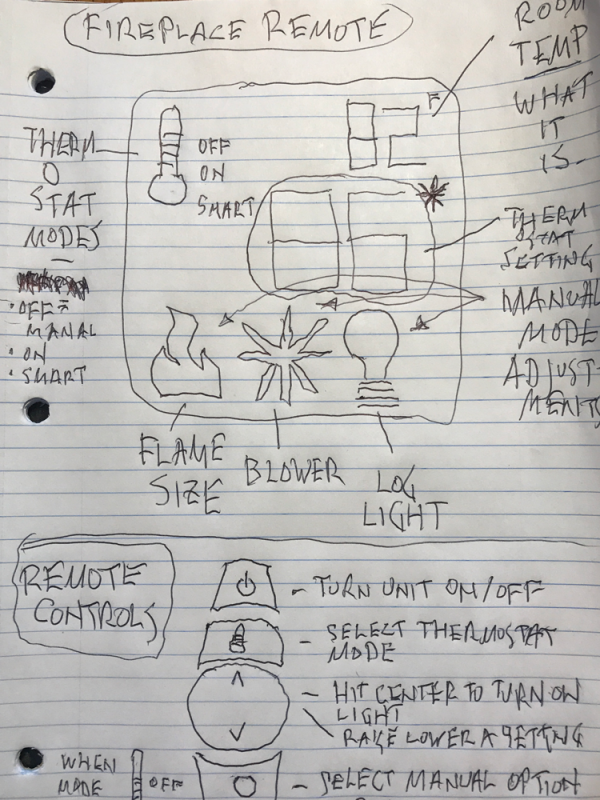 FIREPLACE REMOTE
ROOM
TEMP
WHAT
IT
IS
THERM
O
STAT
MODES
OFF =
MANAL
ON
SMART
OFF
ON
SMART
82 F
66
THERM
STAT
SETTING
MANUAL
MODE
ADJUST
MENTS
FLAME
SIZE
BLOWER
LOG
LIGHT
REMOTE
CONTROLS
- TURN UNIT ON/OFF
- SELECT THERMOSTAT
MODE
- HIT CENTER TO TURN ON
LIGHT
LOWER A
WHEN
MODE
OFF
- SELECT MANUAL OPTION